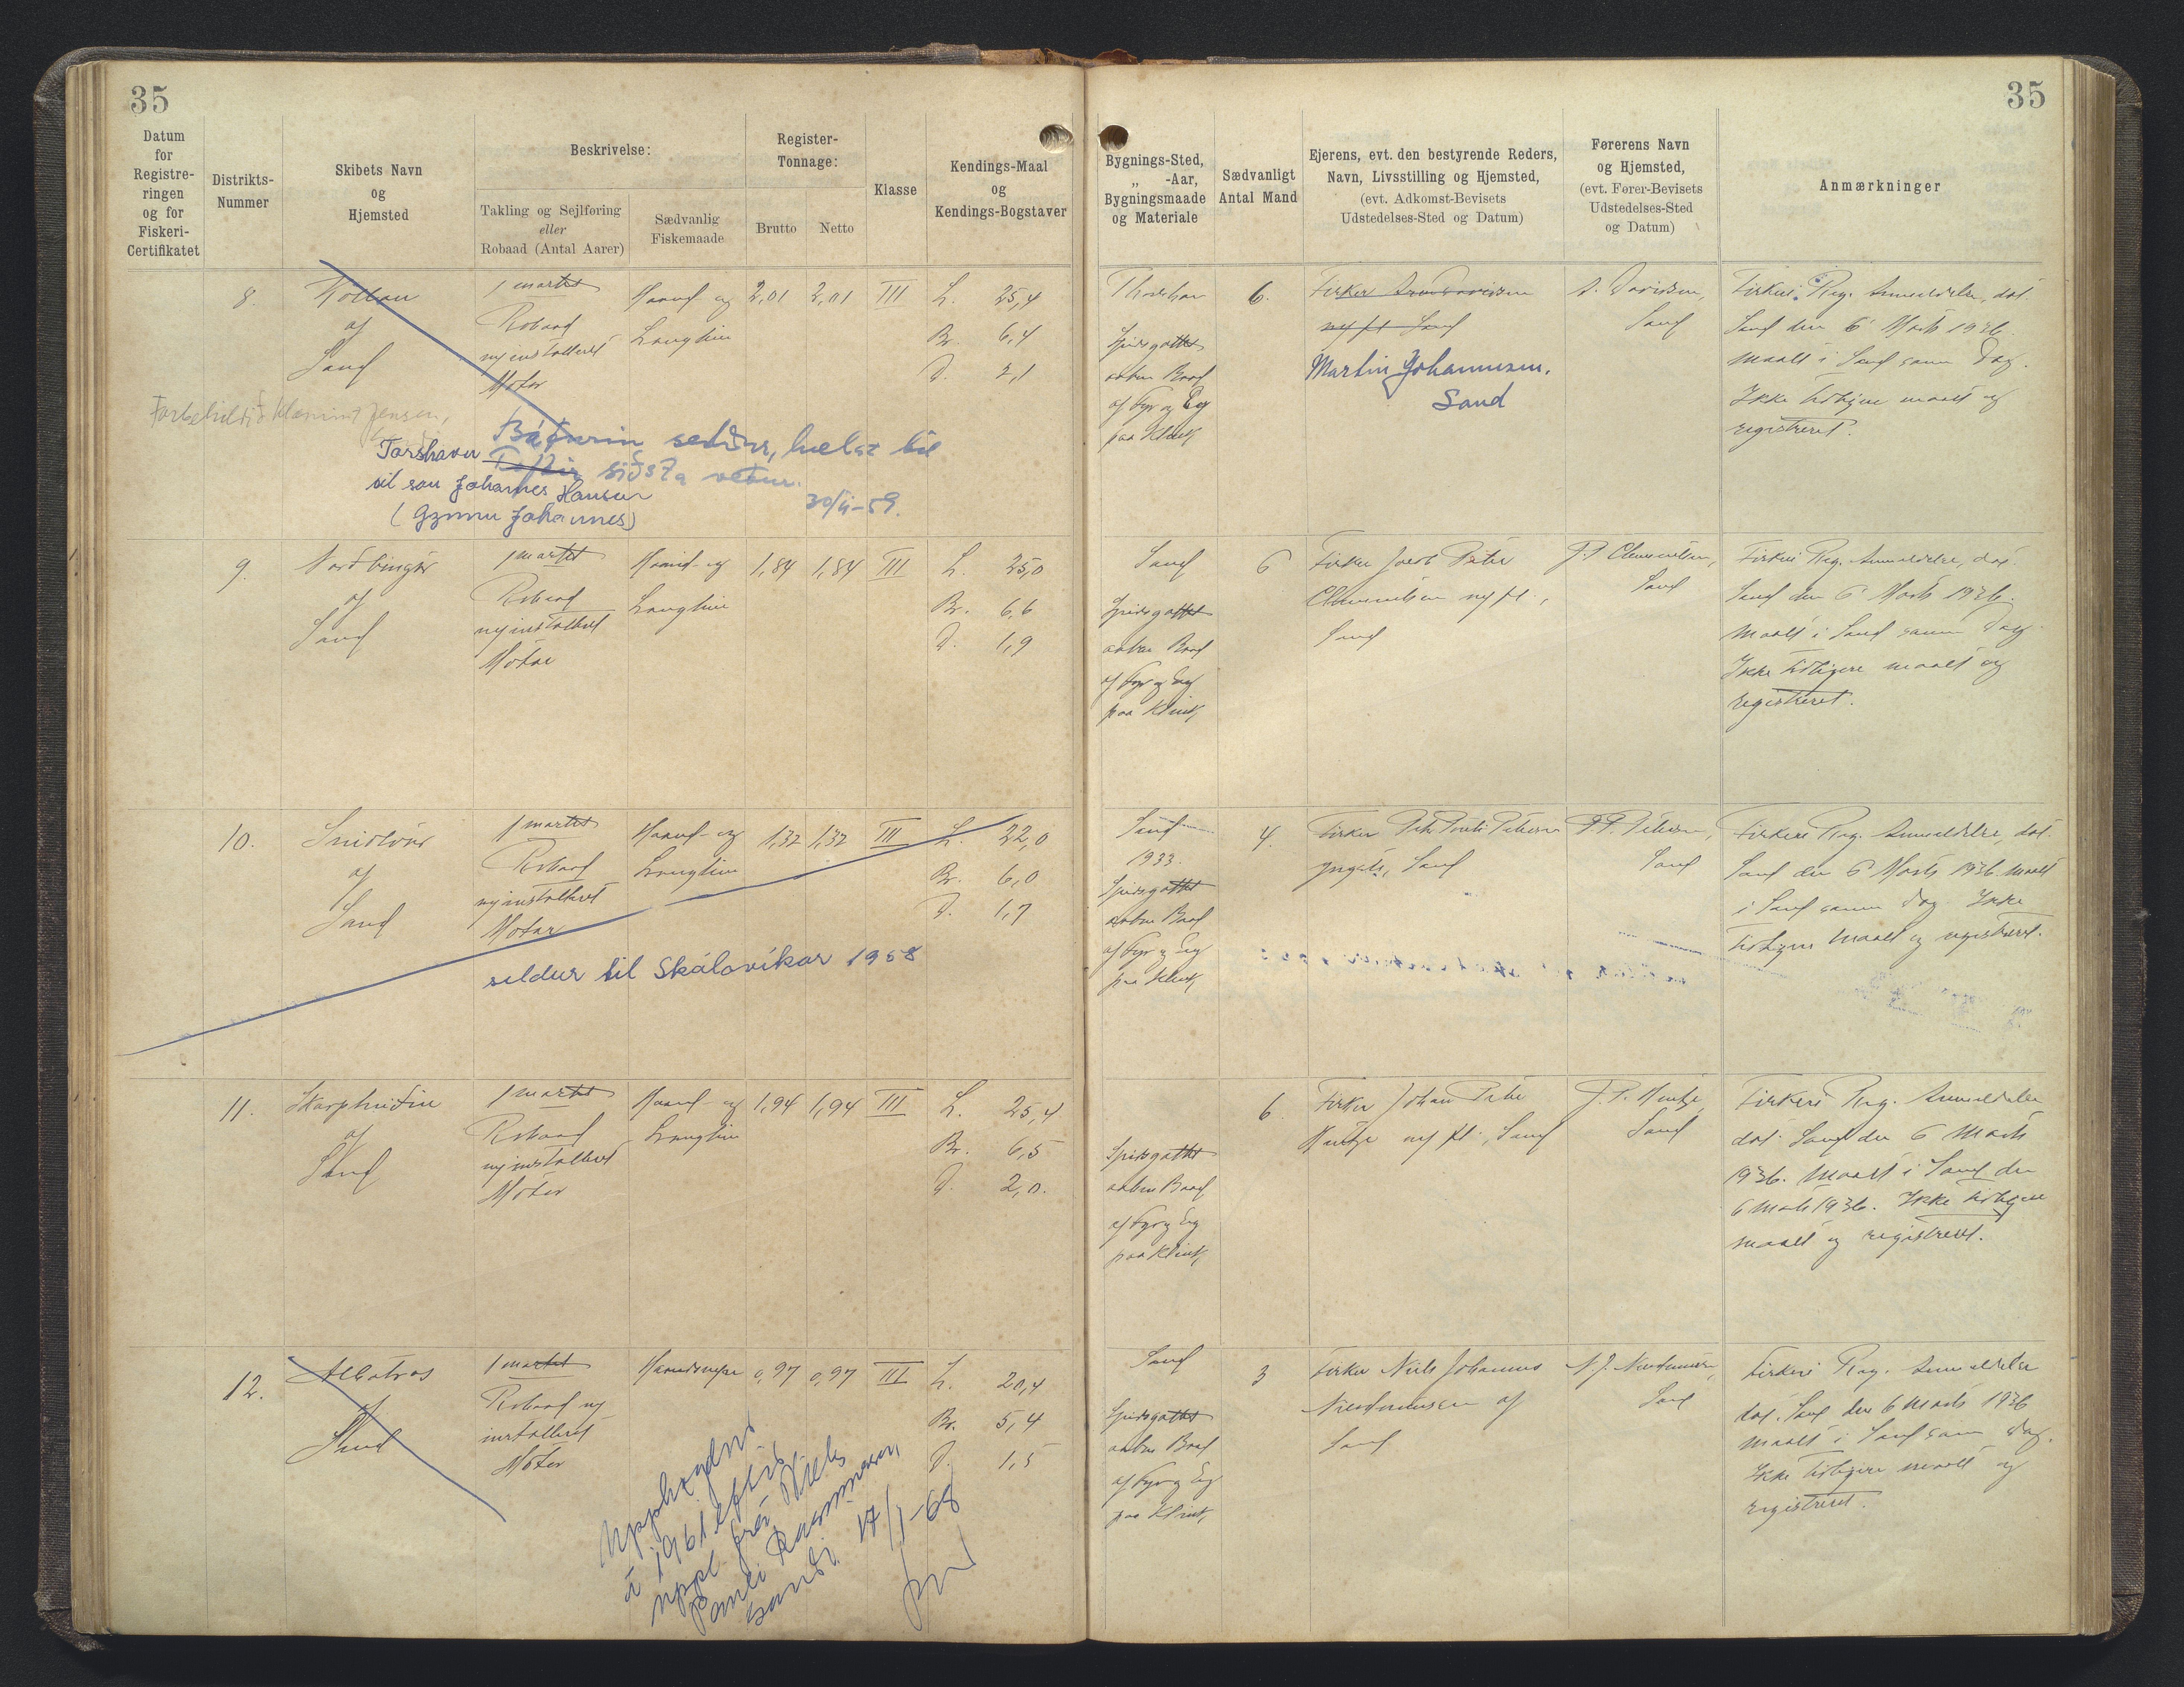 35
35
Datum
for
Registre-
ringen
og for
Fiskeri-
Certifikatet
Distrikts-
Nummer
Skibets Navn
og
Hjemsted
Beskrivelse:
Takling og Sejlføring
eller
Robaad (Antal Aarer)
Sædvanlig
Fiskemaade
Register-
Tonnage:
Brutto
Netto
Klasse
Kendings-Maal
og
Kendings-Bogstaver
Bygnings-Sted,
„ -Aar,
Bygningsmaade
og Materiale
Sædvanligt
Antal Mand
Ejerens, evt. den bestyrende Reders,
Navn, Livsstilling og Hjemsted,
(evt. Adkomst-Bevisets
Udstedelses-Sted og Datum)
Førerens Navn
og Hjemsted,
(evt. Fører-Bevisets
Udstedelses-Sted
og Datum)
Anmærkninger
8.
af
Sand
1 mastet
Robaad
ny installeret
Motor
Haand- og
Langline
2,01
2,01
III
L. 25,4
Br. 6,4
D. 2,1
Thorshavn
Spidsgattet
aaben Baad
af Fyr og Eg
paa Klink
6.
Fisker
Sand
Martin Johannesen.
Sand
D. Davidsen,
Sand
Fiskeri Reg. Anmeldelse, dat.
Sand den 6' Marts 1936.
Maalt i Sand samme Dag.
Ikke tidligere maalt og
registreret.
Klæmint Jensen,
Báturin seldur, helst til
Torshavn siðsta vetur.
til son Johannes Hansen
30/4-59.
Johannes)
9.
af
Sand
1 mastet
Robaad
ny installeret
Motor
Haand- og
Langline
1,84
1,84
III
L. 25,0
Br. 6,6
D. 1,9
Sand
Spidsgattet
aaben Baad
af Fyr og Eg
paa Klink
6
Fisker Jacob Peter
Clementsen
Sand
J. P. Clementsen,
Sand
Fiskeri Reg. Anmeldelse, dat.
Sand den 6' Marts 1936.
Maalt i Sand samme Dag.
Ikke tidligere maalt og
registreret.
10.
af
Sand
1 mastet
Robaad
ny installeret
Motor
Haand- og
Langline
1,32
1,32
III
L. 22,0
Br. 6,0
D. 1,7
seldur til Skálavíkar 1958
Sand
1933.
Spidsgattet
aaben Baad
af Fyr og Eg
paa Klink
4.
Fisker
Sand
P. P. Petersen,
Sand
Fiskeri Reg. Anmeldelse, dat.
Sand den 6' Marts 1936. Maalt
i Sand samme Dag. Ikke
tidligere maalt og registreret.
11.
Skarphedin
af
Sand
1 mastet
Robaad
ny installeret
Motor
Haand- og
Langline
1,94
1,94
III
L. 25,4
Br. 6,5
D. 2,0.
Spidsgattet
aaben Baad
af Fyr og Eg
paa Klink
6
Fisker Johan Peter
Hentze Sand
J. P. Hentze,
Sand
Fiskeri Reg. Anmeldelse
dat. Sand den 6 Marts
1936. Maalt i Sand den
6 Marts 1936. Ikke tidligere
maalt og registreret.
12.
Albatros
af
Sand
1 mastet
Robaad ny
installeret
Motor
Haandsnøre
0,97
0,97
III
L. 20,4
Br. 5,4
D. 1,5
Upphøgdur
í 1961 eftir
uppl. frá Niels
Pauli Rasmussen,
Sandi. 17/1-68
Sand
Spidsgattet
aaben Baad
af Fyr og Eg
paa Klink
3
Fisker Niels Johannes
af
Sand
Sand
Fiskeri Reg. Anmeldelse
dat. Sand den 6 Marts 1936
maalt i Sand samme Dag.
Ikke tidligere maalt og
registreret.